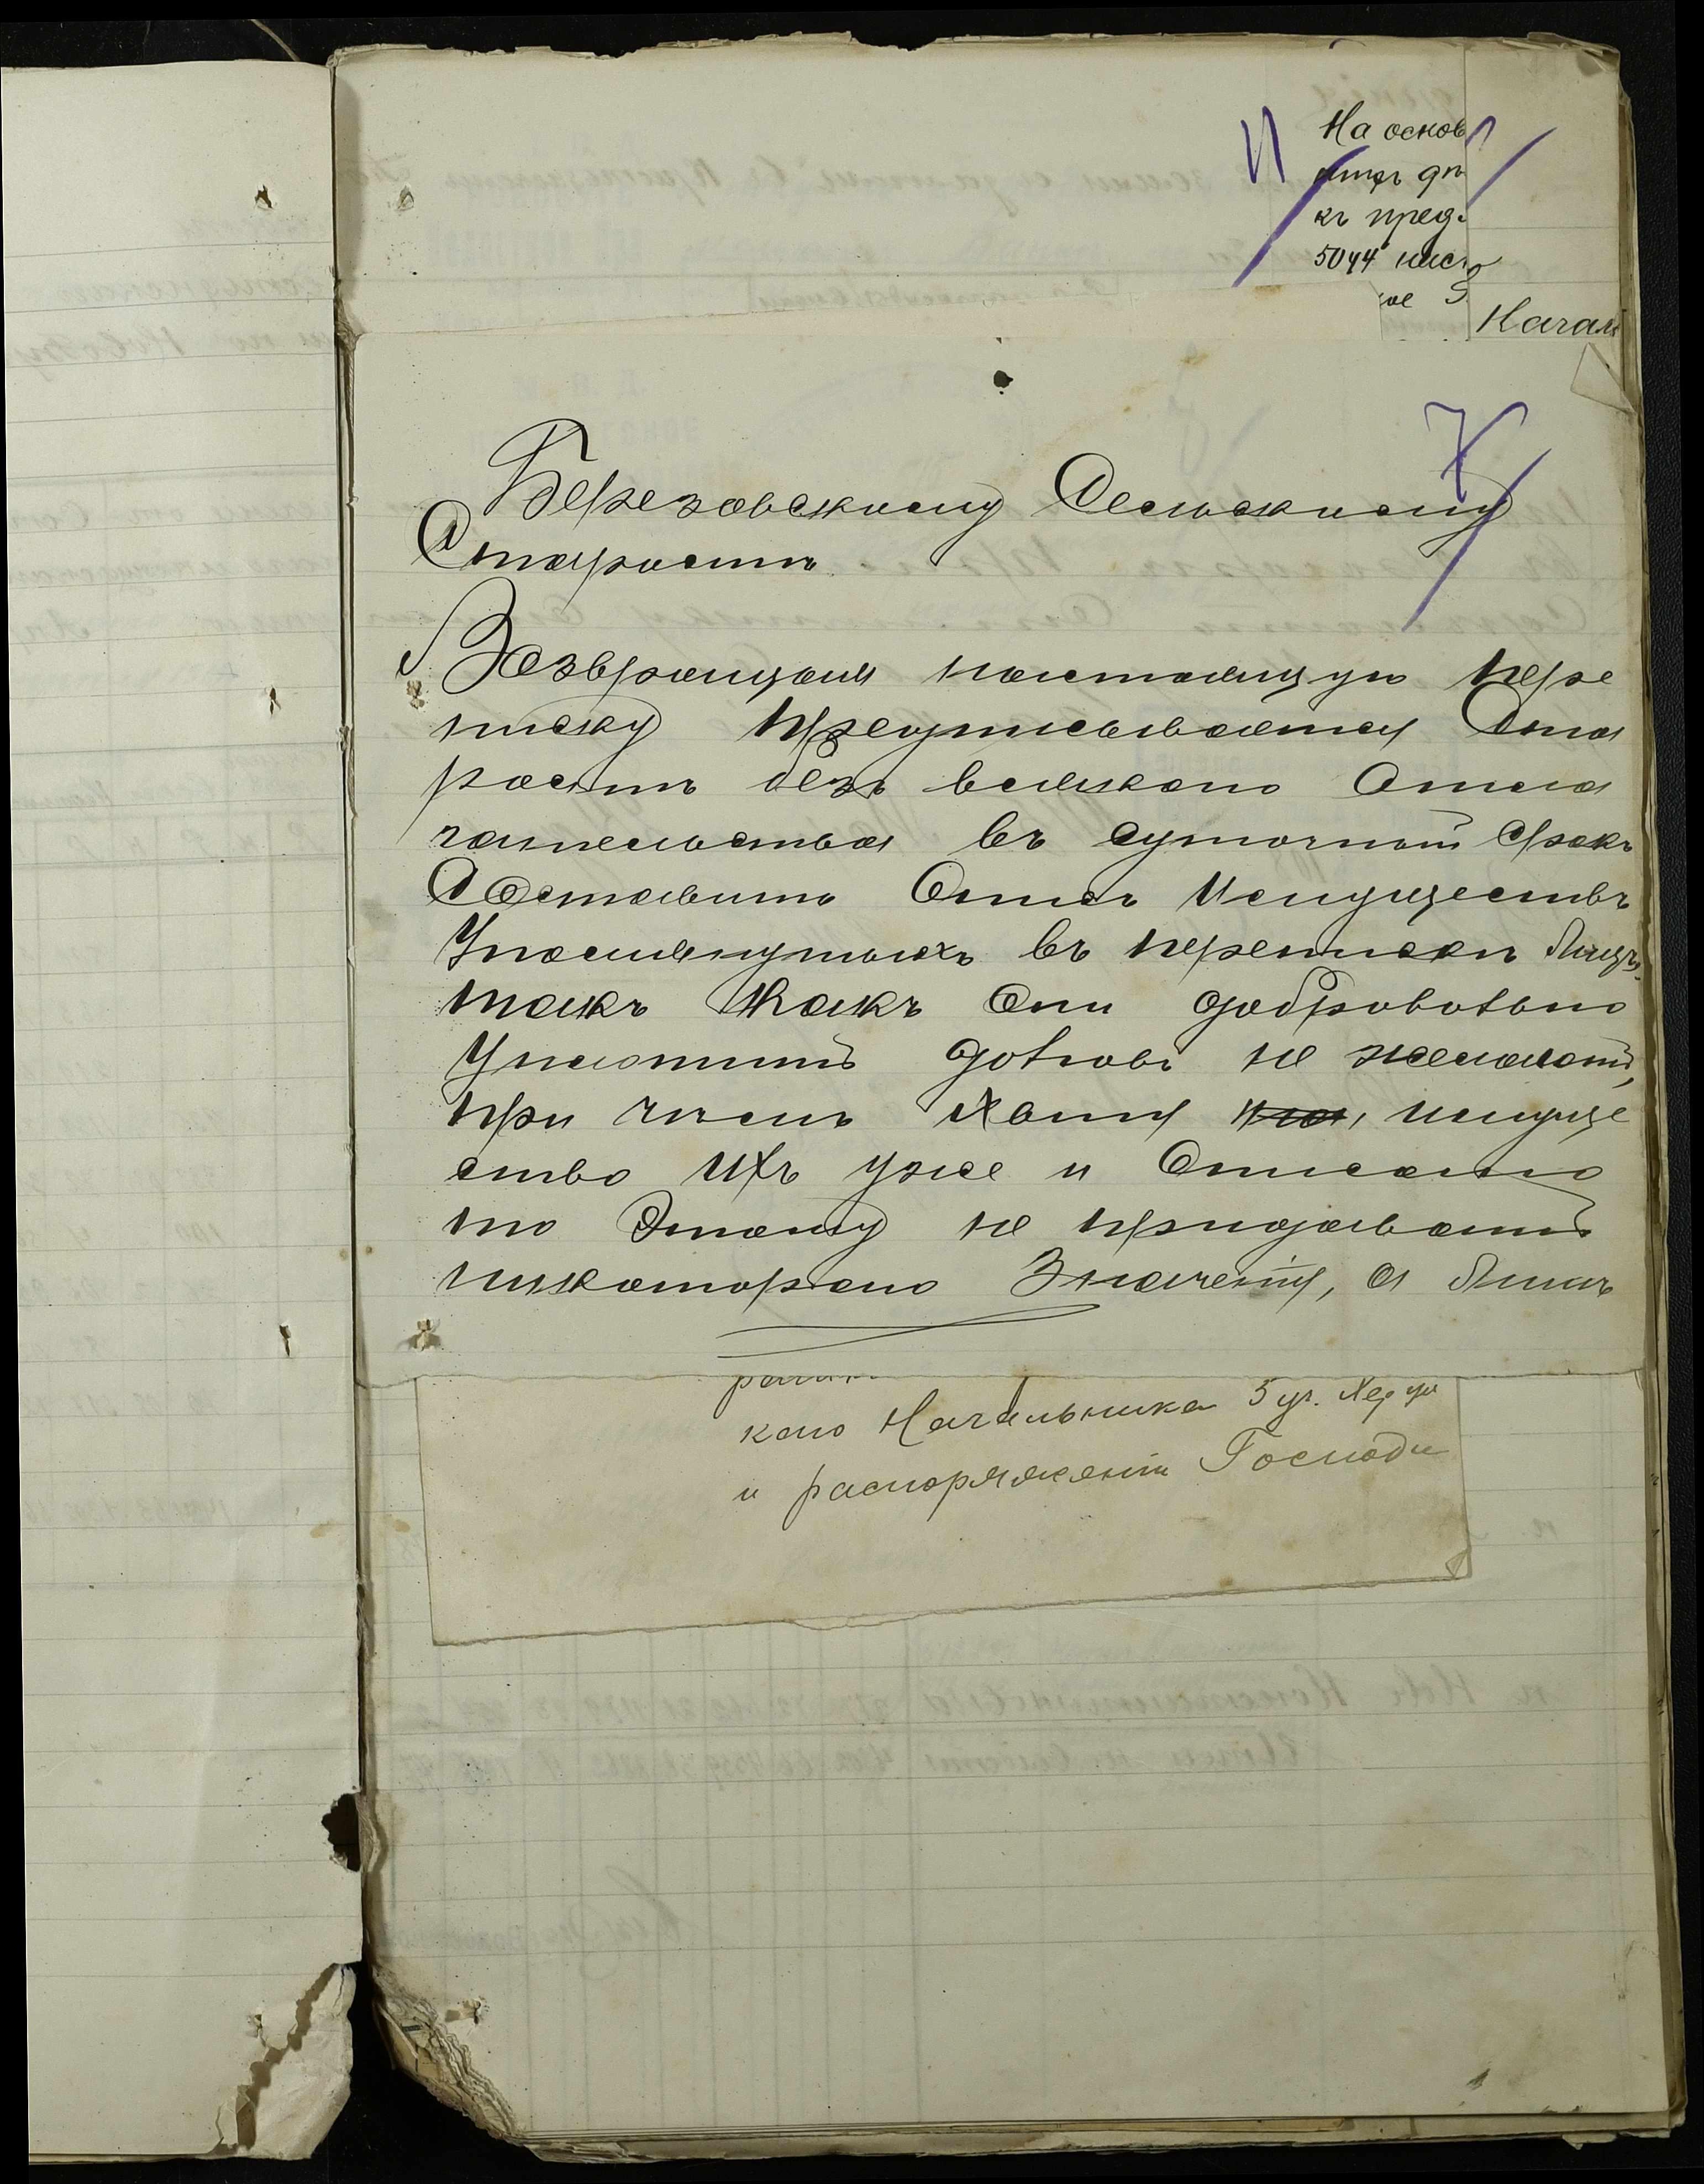 На основ
къ пред
5044 числ
ое
Начал
7
Березовскому Сельскому
Старостѣ
Возвращая настоящую пере
писку предписывается Ста
ростѣ безъ всякаго отла
гательства въ суточный срокъ
Составить Опись Имуществъ
Упомянутыхъ въ переписки лицъ,
такъ какъ они добровольно
Уплотить долговъ не желаютъ,
при чемъ хотя имуще
ство ихъ уже и Описано
то Этому не придавать
никоторого Значенія, а лишь
каго Начальника 5 уч. Хер уи
и распоряженіи Господи